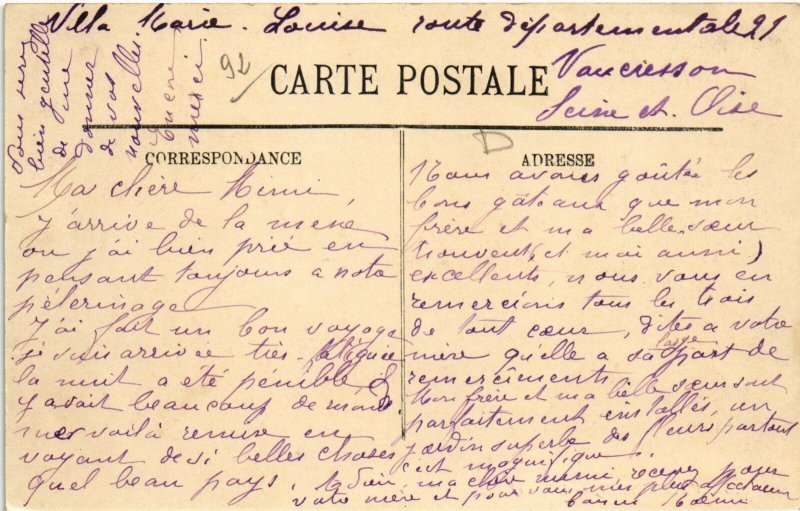 Villa Marie-Louise route départementale 21
Vaucresson
Seine et Oise
92
CARTE POSTALE
CORRESPONDANCE
ADRESSE
Ma chère Mimi,
J'arrive de la messe
ou j'ai bien prié en
pensant toujours a notre
pèlerinage
J'ai fait un bon voyage
je suis arrivée très fatiguée
la nuit a été pénible
y avait beaucoup de monde
me voilà remise en
voyant de si belles choses
quel beau pays.
Nous avons goûtée les
bons gâteaux que mon
frère et ma belle sœur
trouvent (et moi aussi)
excellents, nous vous en
remercions tous les trois
de tout cœur, dites a votre
mère qu'elle a sa large part de
remerciments
Mon frère et ma belle sœur sont
parfaitement installés, un
jardin superbe des fleurs partout
c'est magnifique.
Adieu ma chère mimi recevez pour
votre mère et pour vous mes plus affectueux
baisers Noémi
Vous serez
bien gentille
de me
donner
de vos
nouvelles
Encore
merci